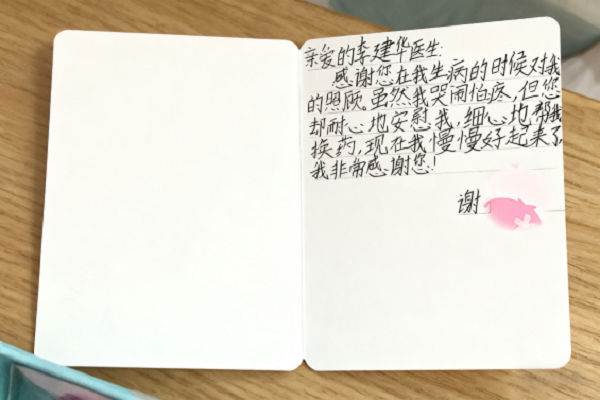 亲爱的李建华医生:
感谢您在我生病的时候对我
的照顾。虽然我哭闹怕疼,但您
却耐心地安慰我,细心地帮我
换药,现在我慢慢好起来了
我非常感谢您!
谢